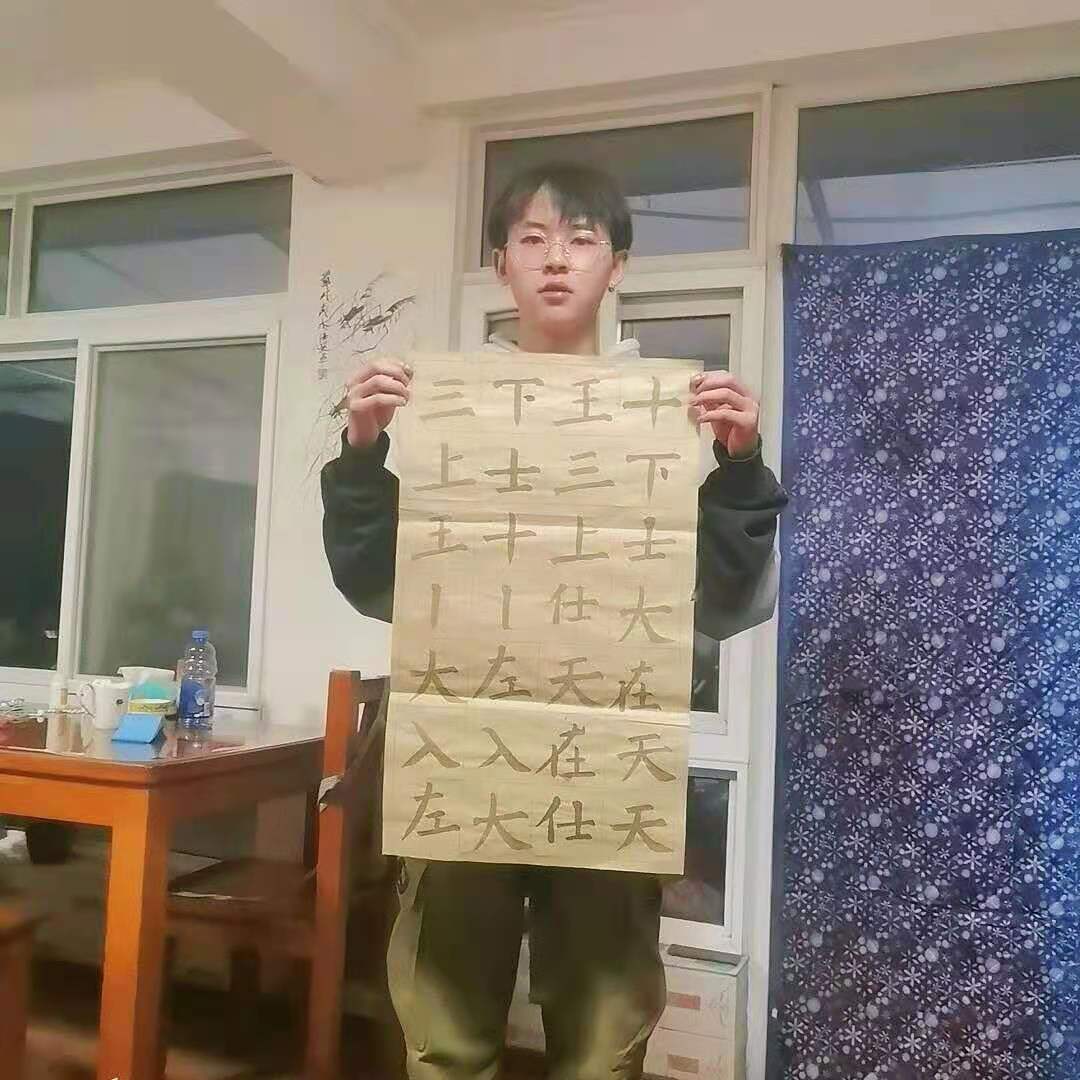 十下士大在天天
王三上仕天在仕
下士十丨左入大
三上王丨大入左